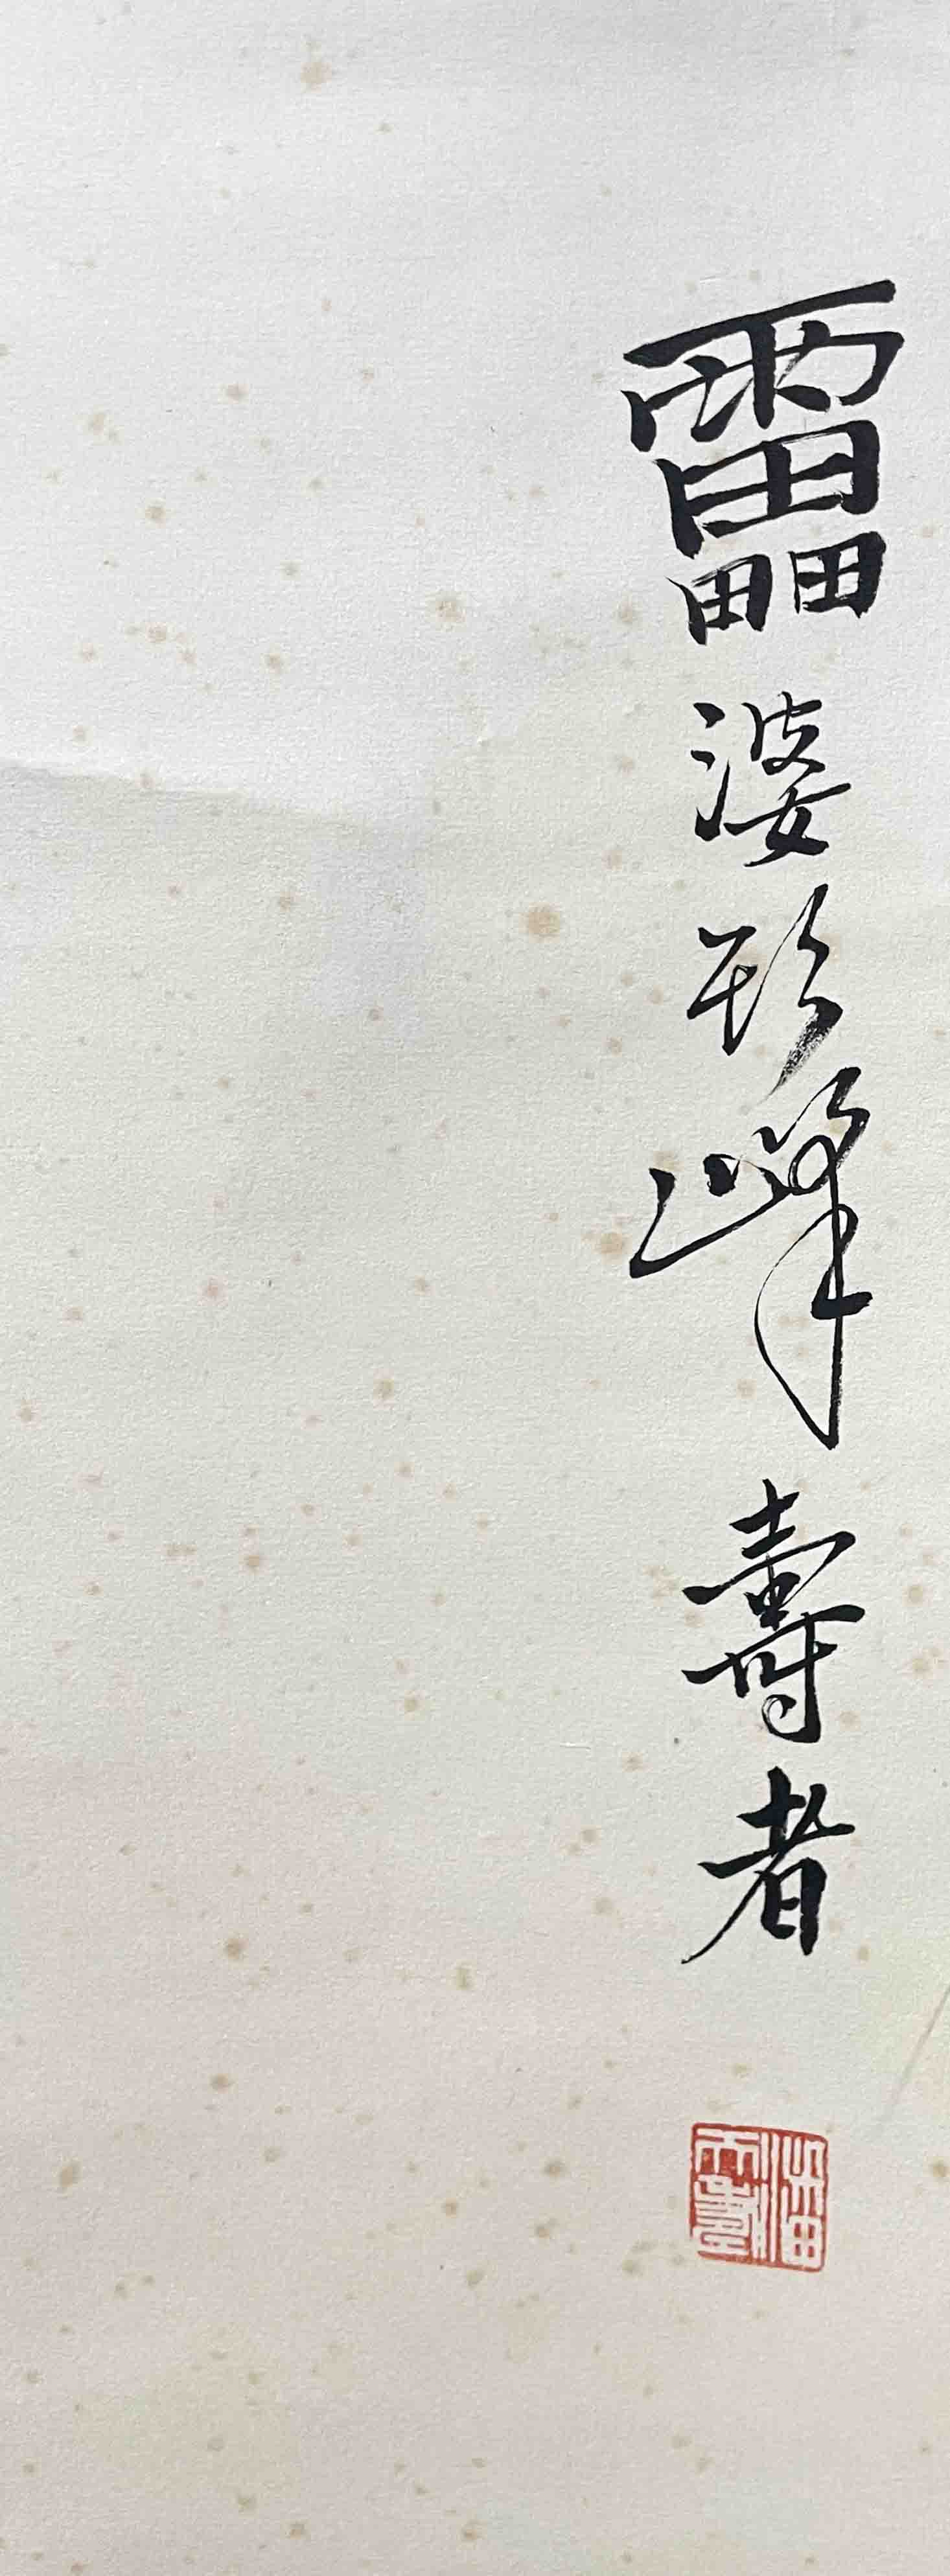 靁婆頭峰壽者
潘天壽